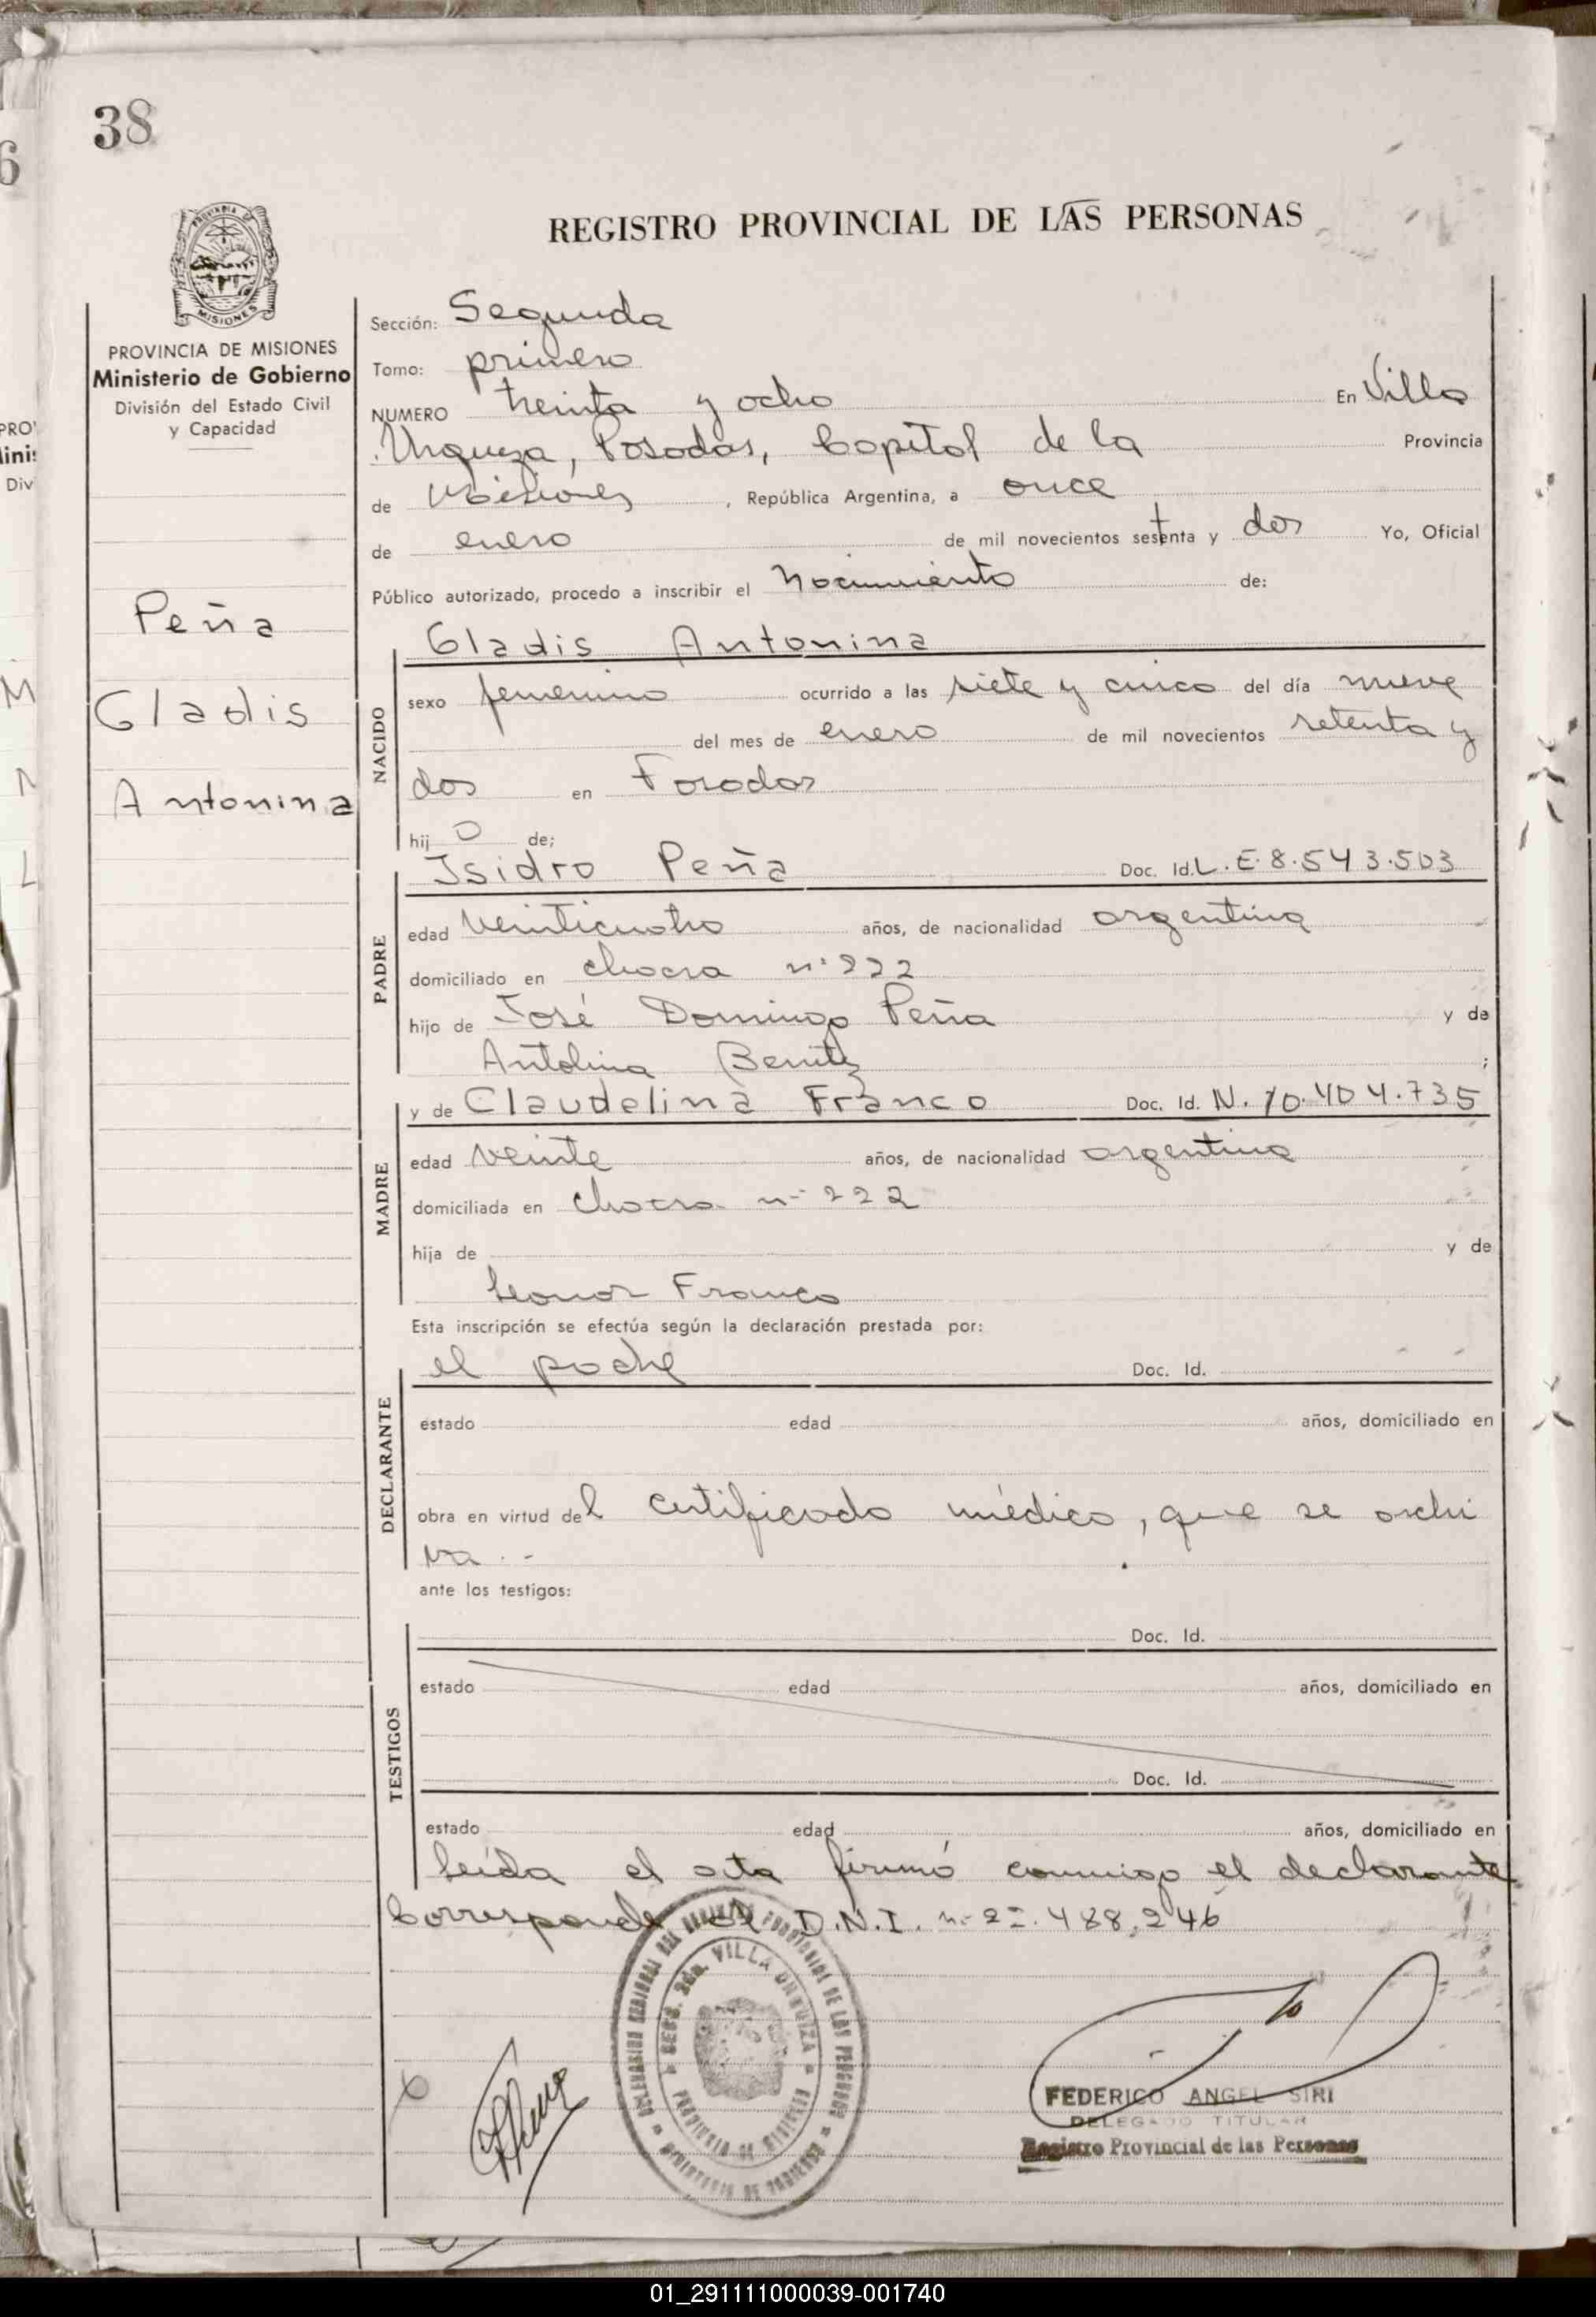 38
REGISTRO PROVINCIAL DE LAS PERSONAS
MISIONES
PROVINCIA DE MISIONES
Ministerio de Gobierno
División del Estado Civil
y Capacidad
Peña
Gladis
Antonina
Sección: Segunda
Tomo: primero
NUMERO treinta y ocho En Villa
Urquiza, Posadas, Capital de la Provincia
de Misiones, República Argentina, a once
de enero de mil novecientos setenta y dos Yo, Oficial
Público autorizado, procedo a inscribir el Nacimiento de:
NACIDO
Gladis Antonina
sexo femenino ocurrido a las siete y cinco del día nueve
del mes de enero de mil novecientos setenta y
dos en Posadas
hij o de;
PADRE
Isidro Peña Doc. Id. L.E 8.543.503
edad veinticuatro años, de nacionalidad argentina
domiciliado en chacra nº 222
hijo de José Domingo Peña y de
Antolina Benitez ;
MADRE
y de Claudelina Franco Doc. Id. N. 10.404.735
edad veinte años, de nacionalidad argentina
domiciliada en chacra nº 222
hija de y de
Leonor Franco
Esta inscripción se efectúa según la declaración prestada por:
DECLARANTE
el padre Doc. Id.
estado edad años, domiciliado en
obra en virtud del certificado médico, que se archi
va.-
ante los testigos:
TESTIGOS
Doc. Id.
estado edad años, domiciliado en
Doc. Id.
estado edad años, domiciliado en
Leída el acta firmó conmigo el declarante
Corresponde al D.N.I. nº 22.488.246
SECC. 2da. VILLA URQUIZA
PROVINCIA DE MISIONES
MINISTERIO DE GOBIERNO
FEDERICO ANGEL SIRI
DELEGADO TITULAR
Registro Provincial de las Personas
01_291111000039-001740